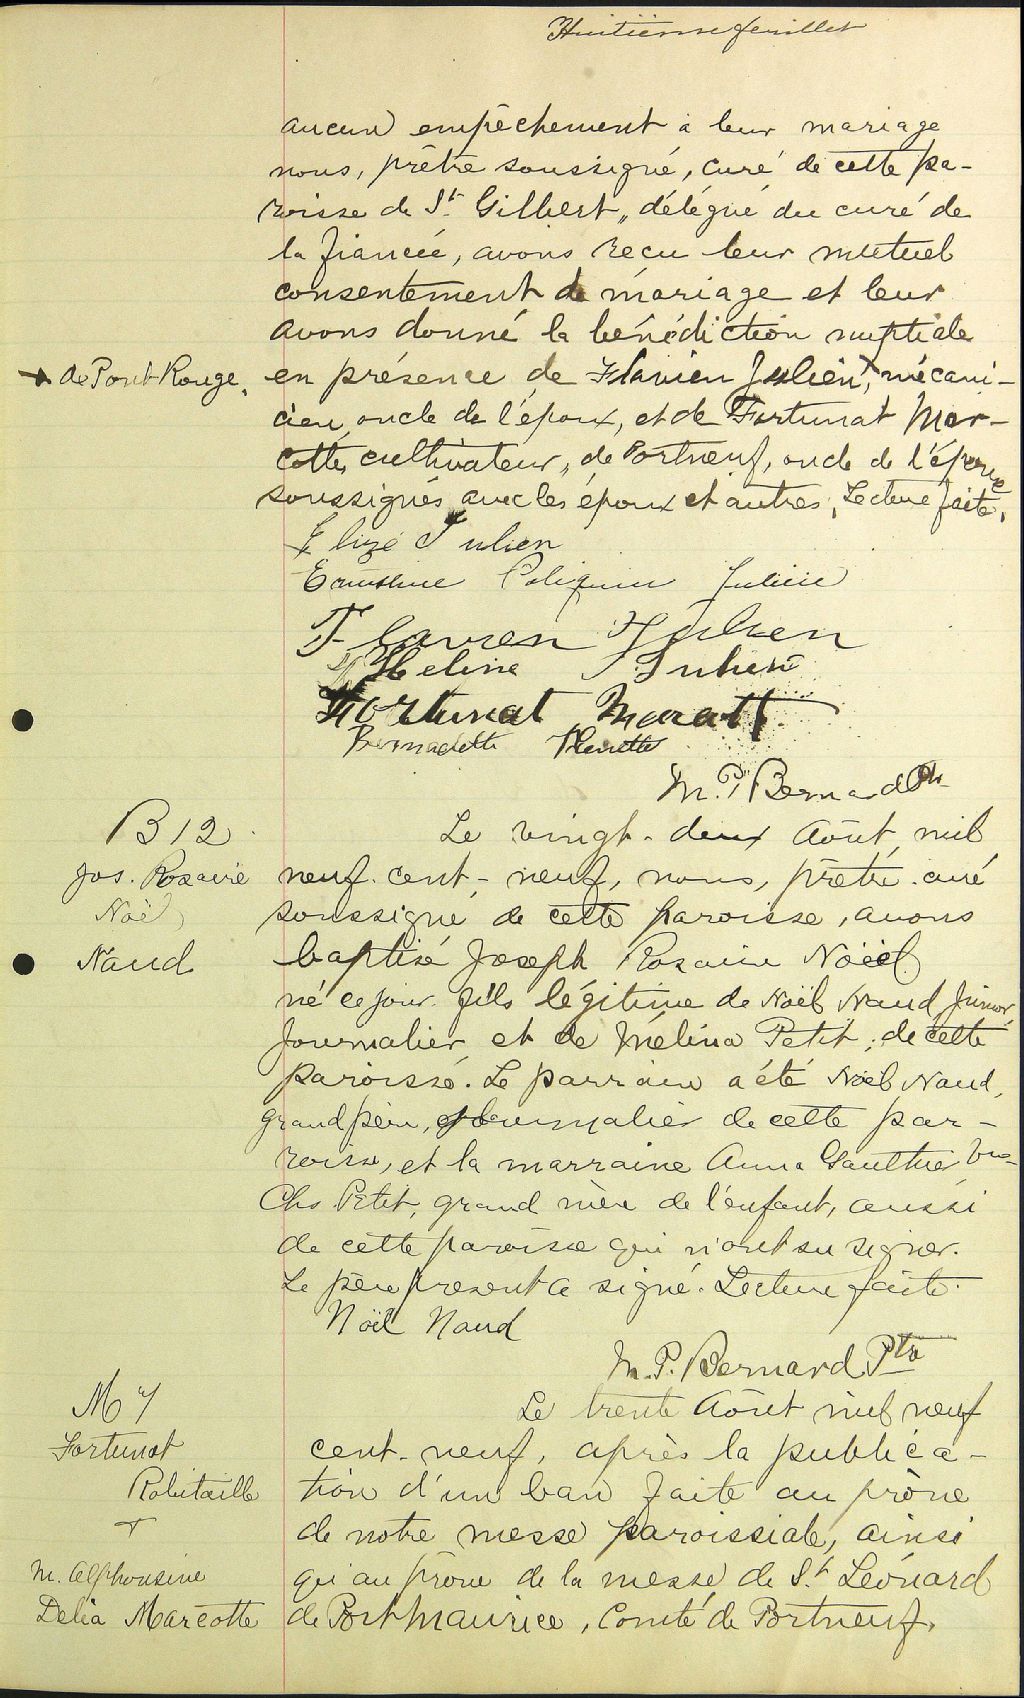 Huitième feuillet
aucun empêchement à leur mariage
nous, prêtre soussigné, curé de cette pa-
roisse de St. Gilbert, délégué du curé de
la fiancée, avons reçu leur mutuel
consentement de mariage et leur
avons donné la bénédiction nuptiale
→ de Pont Rouge,
en présence de Flavien Julien, mécani-
cien, oncle de l'époux, et de Fortunat Mar-
cotte, cultivateur, de Portneuf, oncle de l'épouse
soussignés avec les époux et autres, Lecture faite,
Julien
Julien
Flavien Julien
Julien
Fortunat
Bernadette
M. P. Bernard Ptr
B 12
Jos. Rosaire
Noël
Naud
Le vingt-deux Août mil
neuf-cent-neuf, nous, prêtre curé
soussigné de cette paroisse, avons
baptisé Joseph Rosaire Noël
né ce jour fils légitime de Noël Naud Junior,
journalier et de Mélina Petit, de cette
paroisse. Le parrain a été Noël Naud,
grand père, journalier de cette par-
roisse, et la marraine Anna Gauthier Vve
Chs Petit, grand mère de l'enfant, aussi
de cette paroisse qui n'ont su signer.
Le père present a signé. Lecture faite.
Noël Naud
M. P. Bernard Ptre
M 7
Fortunat
Robitaille
+
M. Alphonsine
Delia Marcotte
Le trente Août mil neuf
cent-neuf, après la publica-
tion d'un ban faite au prône
de notre messe paroissiale, ainsi
qu'au prône de la messe de St Léonard
de Port Maurice, Comté de Portneuf,